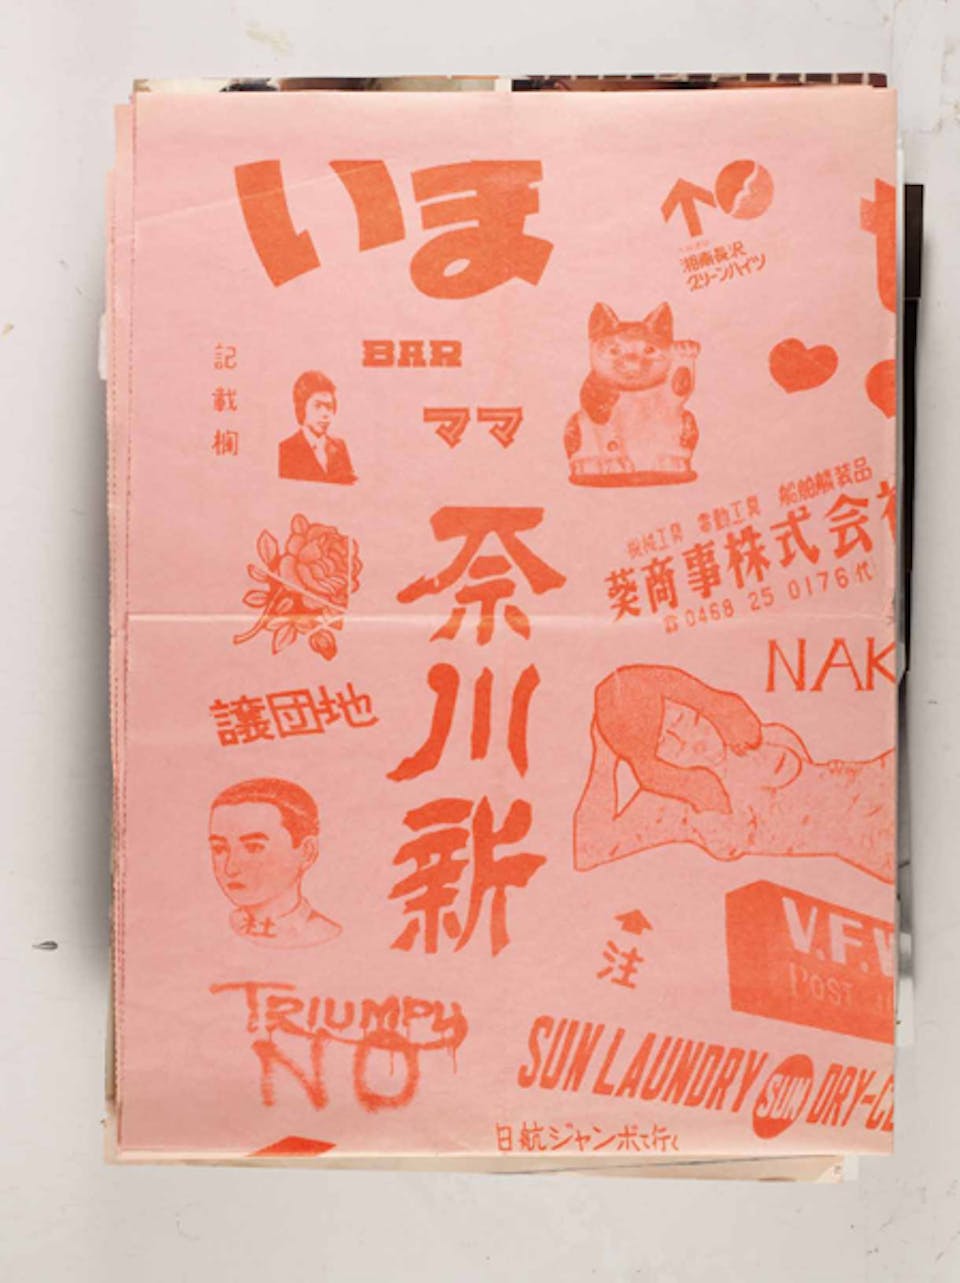 いま
湘南長沢
グリーンハイツ
記載欄
BAR
ママ
機械工具 電動工具 船舶艤装品
葵商事株式会社
☎0468 25 0176代
奈川新
NAK
譲団地
社
V.F.W
POST
注
TRIUMPH
NO
SUN LAUNDRY SUN DRY-CL
日航ジャンボで行く